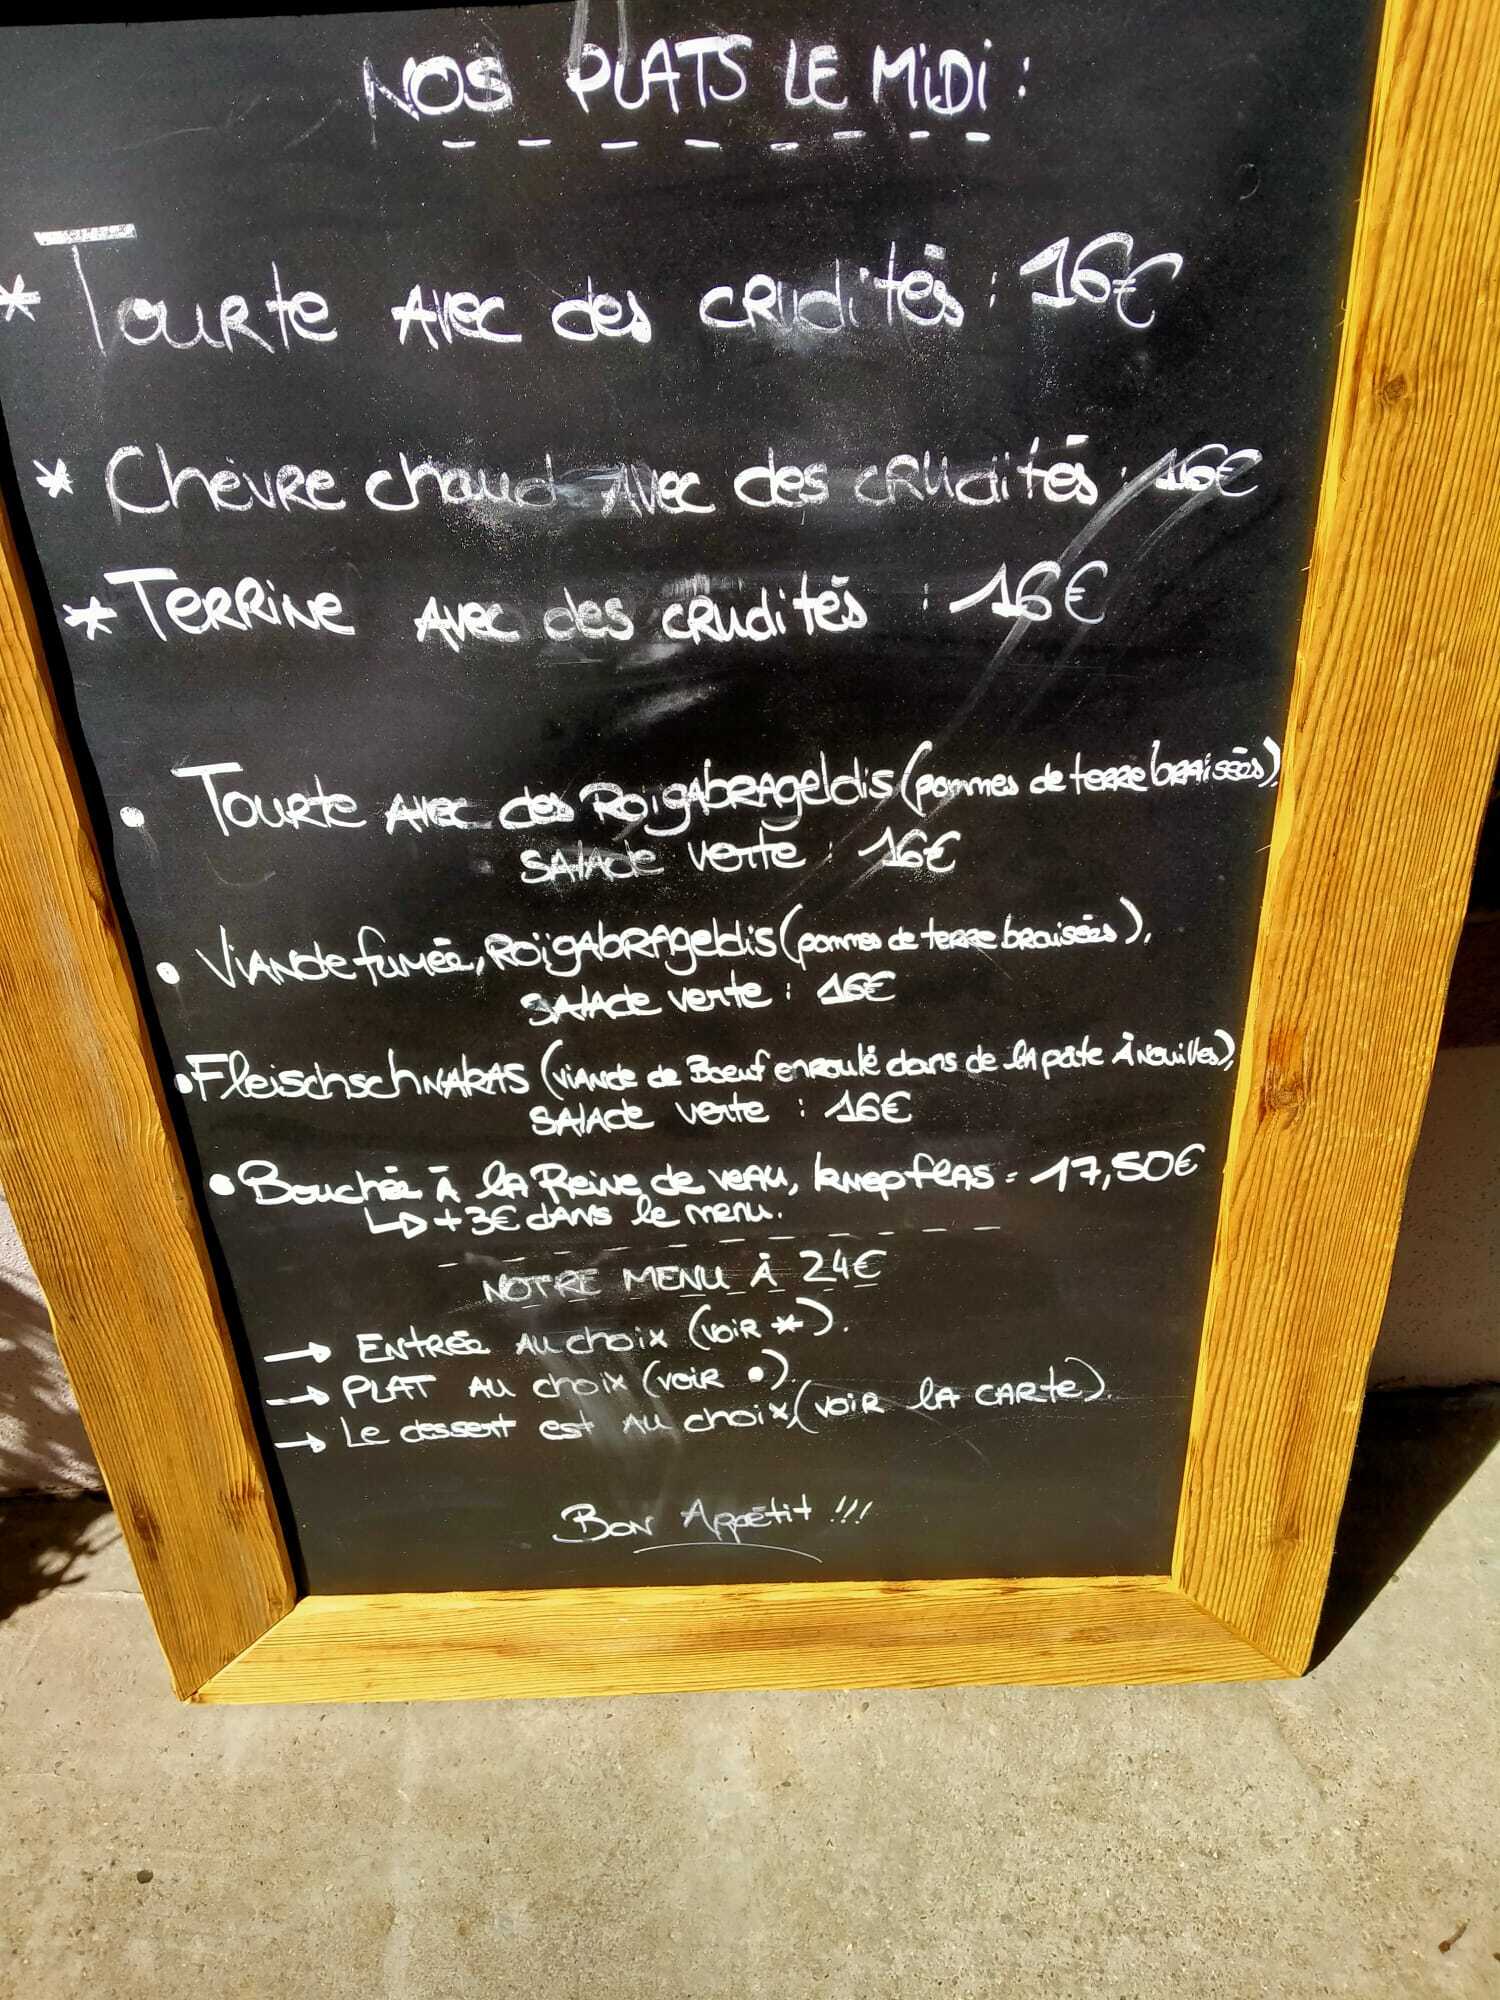 NOS PLATS LE MiDi :
* Tourte avec des crudités : 16€
* Chèvre chaud avec des crudités : 16€
* Terrine avec des crudités : 16€
• Tourte avec des Roïgabrageldis (pommes de terre braisées),
salade verte : 16€
• Viande fumée, Roïgabrageldis (pommes de terre braisées),
salade verte : 16€
• Fleischschnakas (viande de Boeuf enroulé dans de la pâte à nouilles),
salade verte : 16€
• Bouchée à la Reine de veau, knepflas = 17,50€
↳ +3€ dans le menu.
NOTRE MENU À 24€
→ Entrée au choix (voir *).
→ PLAT au choix (voir •).
→ Le dessert est au choix, (voir la carte).
Bon Appétit !!!